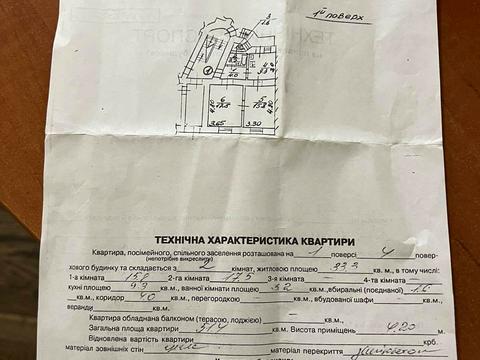 1й поверх
6
17.5
5
15.8
4.20
4.20
3.65
3.30
ТЕХНІЧНА ХАРАКТЕРИСТИКА КВАРТИРИ
Квартира, посімейного, спільного заселення розташована на 1 поверсі 4 повер-
(непотрібне викреслити)
хового будинку та складається з 2 кімнат, житловою площею 33.3 кв. м., в тому числі:
1-а кімната 15.8 кв. м., 2-га кімната 17.5 кв. м., 3-я кімната кв. м., 4-та кімната кв. м.,
кухні площею 9.3 кв. м., ванної кімнати площею 3.2 кв. м., вбиральні (поєднаної) 1.6
кв. м., коридор 4.0 кв. м., перегородкою – кв. м., вбудованої шафи кв. м.,
веранди кв. м.
Квартира обладнана балконом (терасою, лоджією) кв. м.
Загальна площа квартири 51.4 кв.м. Висота приміщень 4.20 м.
Відновлена вартість квартири крб.
матеріал зовнішніх стін матеріал перекриття